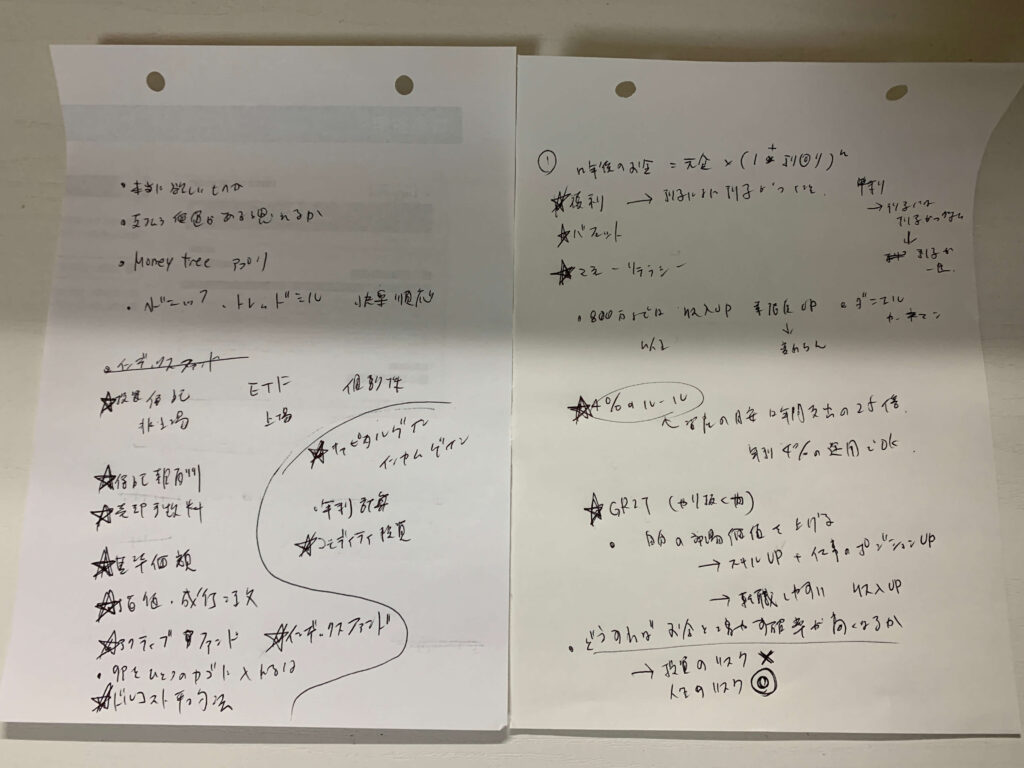 ・本当に欲しいものか
・支払う価値があると思えるか
・Money tree アプリ
・ヘドニック・トレッドミル 快楽順応
・インデックスファンド
★投資信託 ETF 個別株
非上場 上場
★キャピタルゲイン
インカムゲイン
★信託報酬
★売却手数料
・年利計算
★コモディティ投資
★基準価額
★指値・成行注文
★アクティブファンド ★インデックスファンド
・卵をひとつのカゴに入れるな
★ドルコスト平均法
① n年後のお金 = 元金 × (1 + 利回り)ⁿ
★複利 → 利子にさらに利子がつくこと 単利
→ 利子には
利子がつかない
↓
利子が
一定
★バフェット
★マネーリテラシー
・800万までは 収入UP 幸福度UP ・ダニエル
カーネマン
以上 ↓
変わらん
★4%のルール
↖ 資産の目安は年間支出の25倍
年利4%の運用でOK
★GRIT (やり抜く力)
・自分の市場価値を上げる
→ スキルUP + 仕事のポジションUP
→ 転職しやすい 収入UP
・どうすればお金を増やす確率が高くなるか
→ 投資のリスク ×
人生のリスク ◎